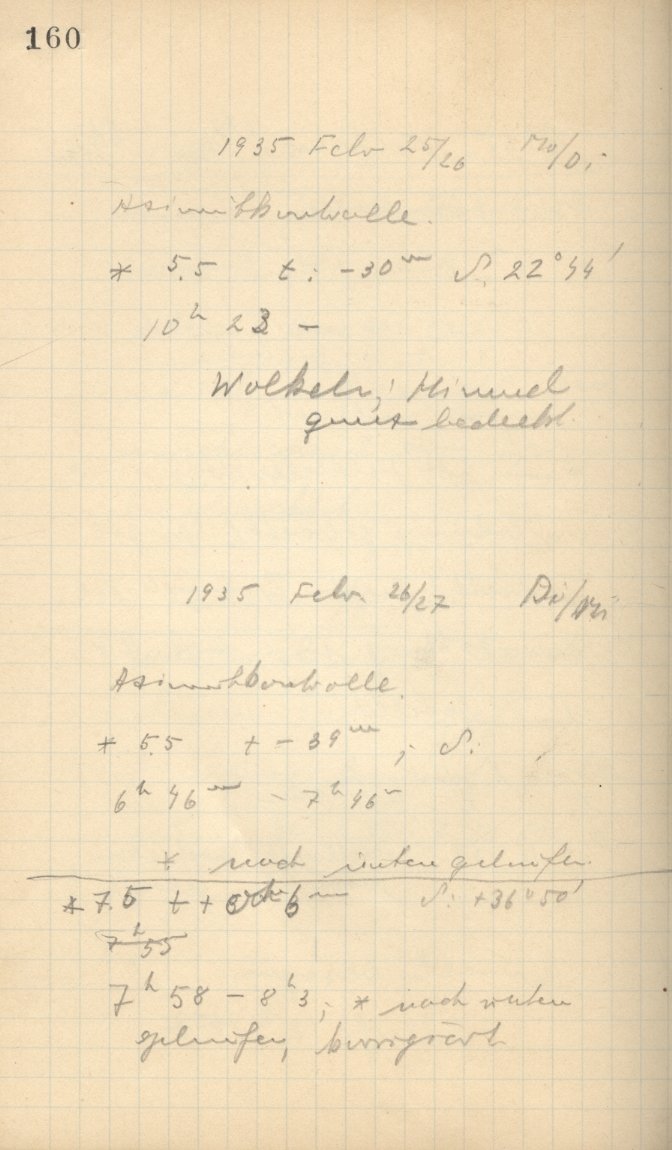 160
1935 Febr 25/26 Mo/Di
Azimutkontrolle.
* 5.5 t: -30ᵐ δ: 22°44'
10ʰ 23 –
Wolken; Himmel
ganz bedeckt.
1935 Febr. 26/27 Di/Mi
Azimutkontrolle.
* 5.5 t - 39ᵐ ; δ:
6ʰ 46ᵐ - 7ʰ 46ᵐ
* nach unten gelaufen.
* 7.5 t + 6ᵐ δ: +36°50'
7ʰ 55
7ʰ 58 – 8ʰ 3; * nach unten
gelaufen, korrigiert